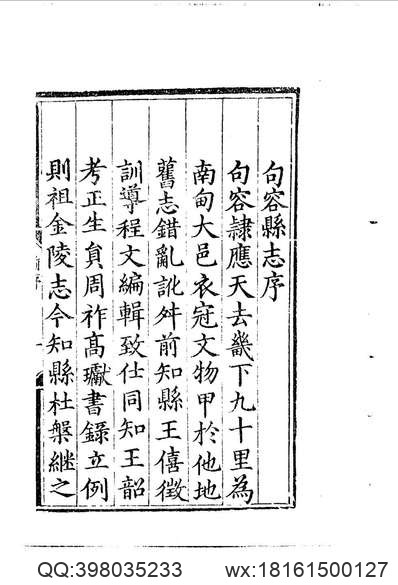 句容縣志序
句容隷應天去畿下九十里為
南甸大邑衣冠文物甲於他地
舊志錯亂訛舛前知縣王僖徵
訓導程文編輯致仕同知王韶
考正生負周祚高瓛書錄立例
則祖金陵志今知縣杜槃継之
QQ:398035233 wx:18161500127